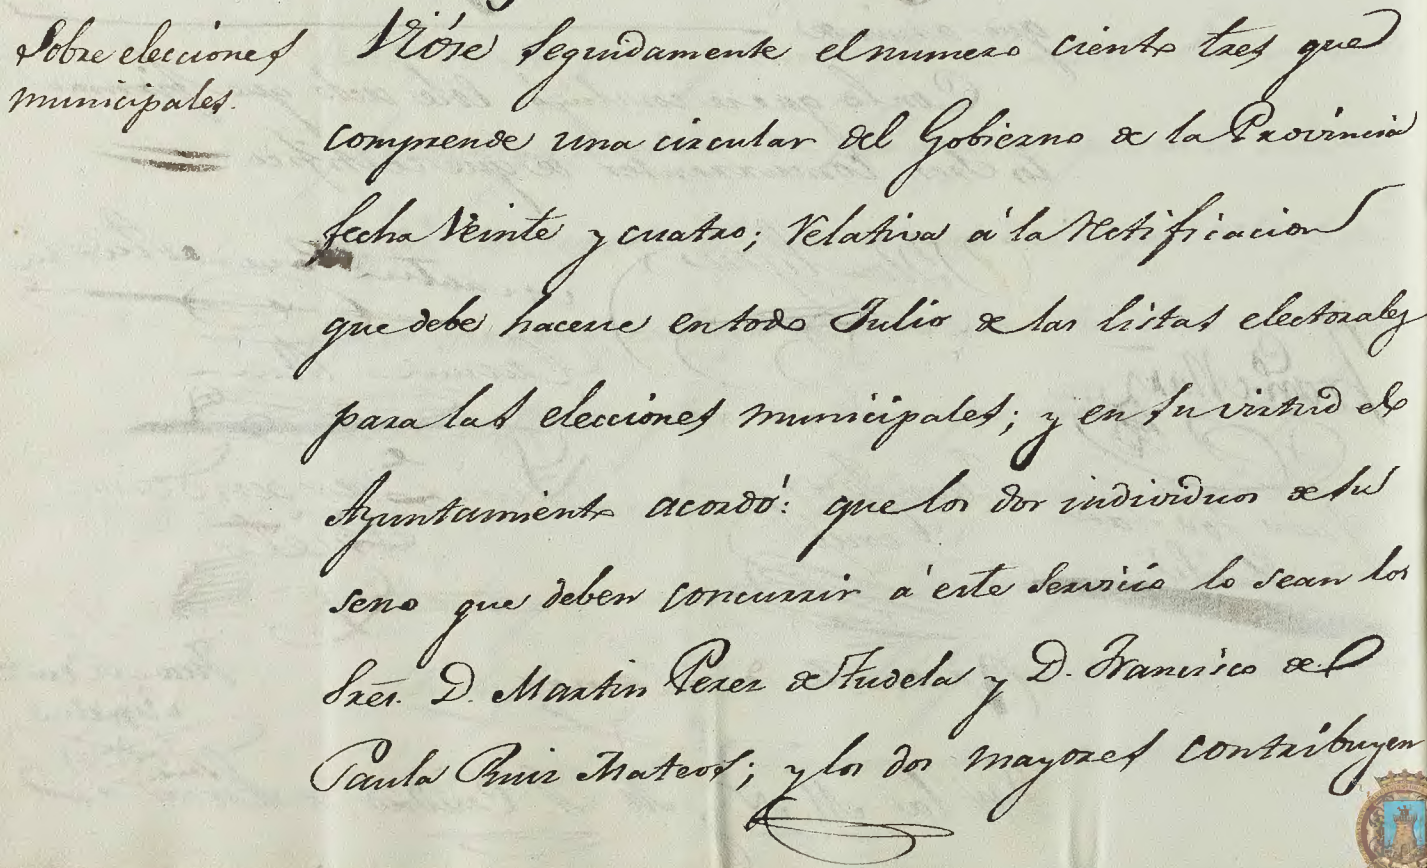 Sobre elecciones
municipales.
Vióse seguidamente el numero ciento tres que
comprende una circular del Gobierno de la Provincia
fecha Veinte y cuatro; relativa á la retificacion
que debe hacerse en todo Julio de las listas electorales
para las elecciones municipales; y en su virtud el
Ayuntamiento acordó: que los dos individuos de su
seno que deben concurrir á este servicio lo sean los
Sres. D. Martin Perez de Tudela y D. Francisco de
Paula Ruiz Mateos; y los dos mayores contribuyen